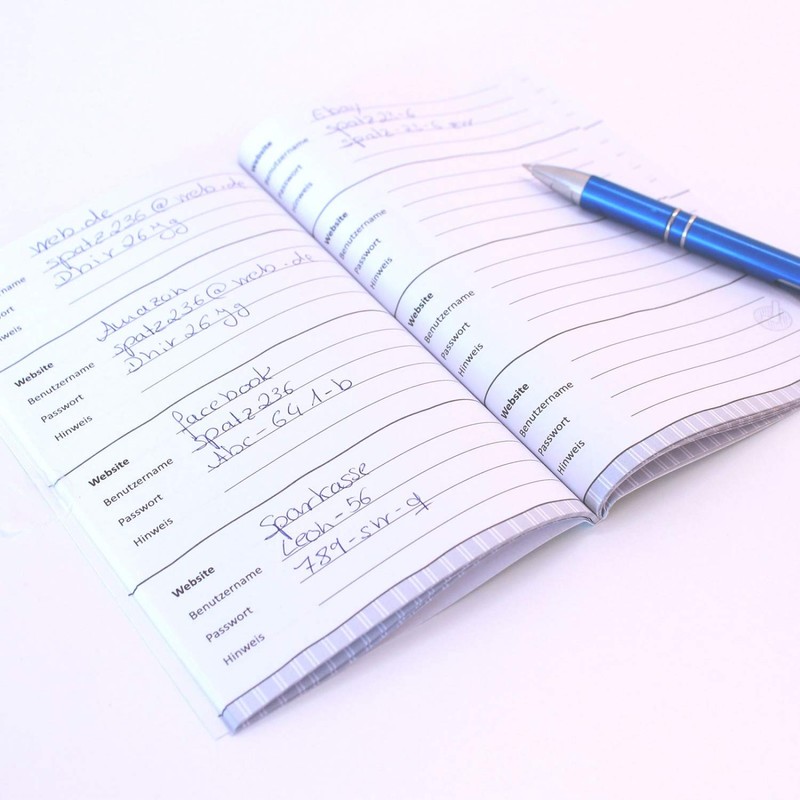 web.de
name spatz236@web.de
ort Dhir26yg
weis
Website Amazon
Benutzername spatz236@web.de
Passwort Dhir26yg
Hinweis
Website facebook
Benutzername spatz236
Passwort Abc-641-b
Hinweis
Website Sparkasse
Benutzername Leon-56
Passwort 789-sw-q
Hinweis
Website Ebay
Benutzername spatz23-6
Passwort
Hinweis
Website
Benutzername
Passwort
Hinweis
Website
Benutzername
Passwort
Hinweis
Website
Benutzername
Passwort
Hinweis